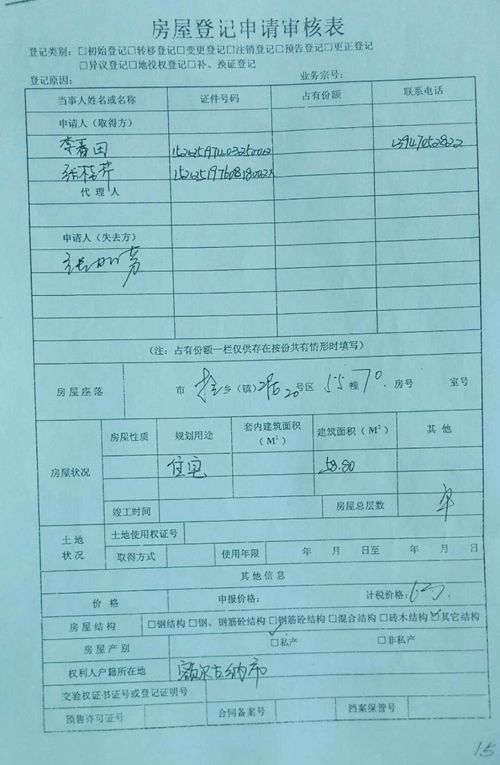 房屋登记申请审核表
登记类别：□初始登记□转移登记□变更登记□注销登记□预告登记□更正登记
□异议登记□地役权登记□补、换证登记
登记原因： 业务宗号：
当事人姓名或名称 证件号码 占有份额 联系电话
申请人（取得方）
李春田 13947052822
代理人
申请人（失去方）
（注：占有份额一栏仅供存在按份共有情形时填写）
房屋座落 市 乡（镇） 20 号区 55 幢 70. 房号 室号
房屋状况 房屋性质 规划用途 套内建筑面积（M²） 建筑面积（M²） 其他
住宅 58.80
竣工时间 房屋总层数
土地状况 土地使用权证号
取得方式 使用年限 年 月 日至 年 月 日
其他信息
价格 申报价格： 计税价格：6万
房屋结构 □钢结构□钢、钢筋砼结构□钢筋砼结构□混合结构□砖木结构□其它结构
房屋产别 □私产 □非私产
权利人户籍所在地 额尔古纳市
交验权证书证号或登记证明号
预告许可证号 合同备案号 档案保管号
15